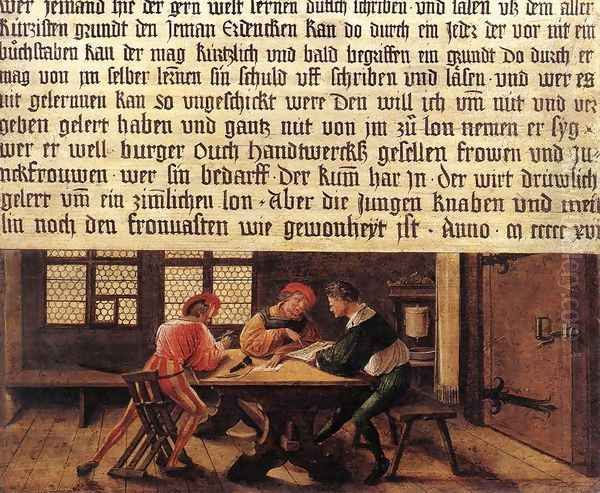 wer jemand hie der gern welt lernen dütsch schriben und läsen uß dem aller
kürtzisten grundt den jeman erdencken kan do durch ein jeder der vor nit ein
büchstaben kan der mag kürtzlich und bald begriffen ein grundt do durch er
mag von jm selber lernen sin schuld uff schriben und läsen · und wer es
nit gelernnen kan so ungeschickt were den will ich um nüt und ver
geben gelert haben und gantz nüt von jm zů lon nemen er syg
wer er well burger ouch handtwerckß gesellen frowen und ju
nckfrouwen · wer sin bedarff · der kum har jn · der wirt drüwlich
gelert um ein zimlichen lon · Aber die jungen knaben und meit
lin noch den fronuasten wie gewonheyt ist · Anno · m ccccc xvi